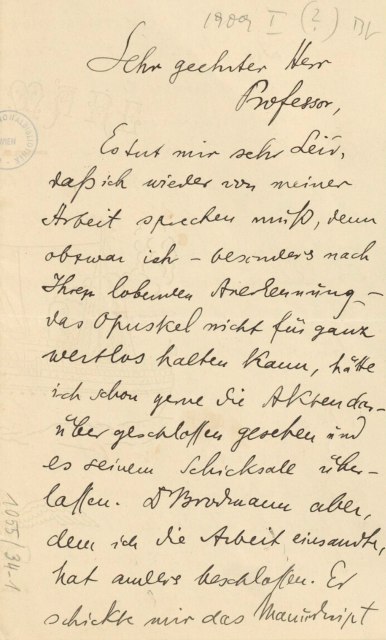 1909 I (?)
Sehr geehrter Herr
Professor,
Es tut mir sehr Leid,
daß ich wieder von meiner
Arbeit sprechen muß, denn
obzwar ich – besonders nach
Ihrer lobenden Anerkennung –
das Opuskel nicht für ganz
wertlos halten kann, hätte
ich schon gerne die Akten dar-
über geschlossen gesehen und
es seinem Schicksale über-
lassen. Dr Brodmann aber,
dem ich die Arbeit einsandte,
hat anders beschlossen. Er
schickte mir das Manuskript
1055/34-1